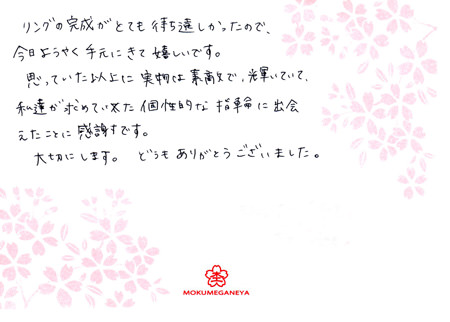 リングの完成がとても待ち遠しかったので、
今日ようやく手元にきて嬉しいです。
思っていた以上に実物は素敵で、輝いていて、
私達が求めていた個性的な指輪に出会
えたことに感謝です。
大切にします。どうもありがとうございました。
MOKUMEGANEYA